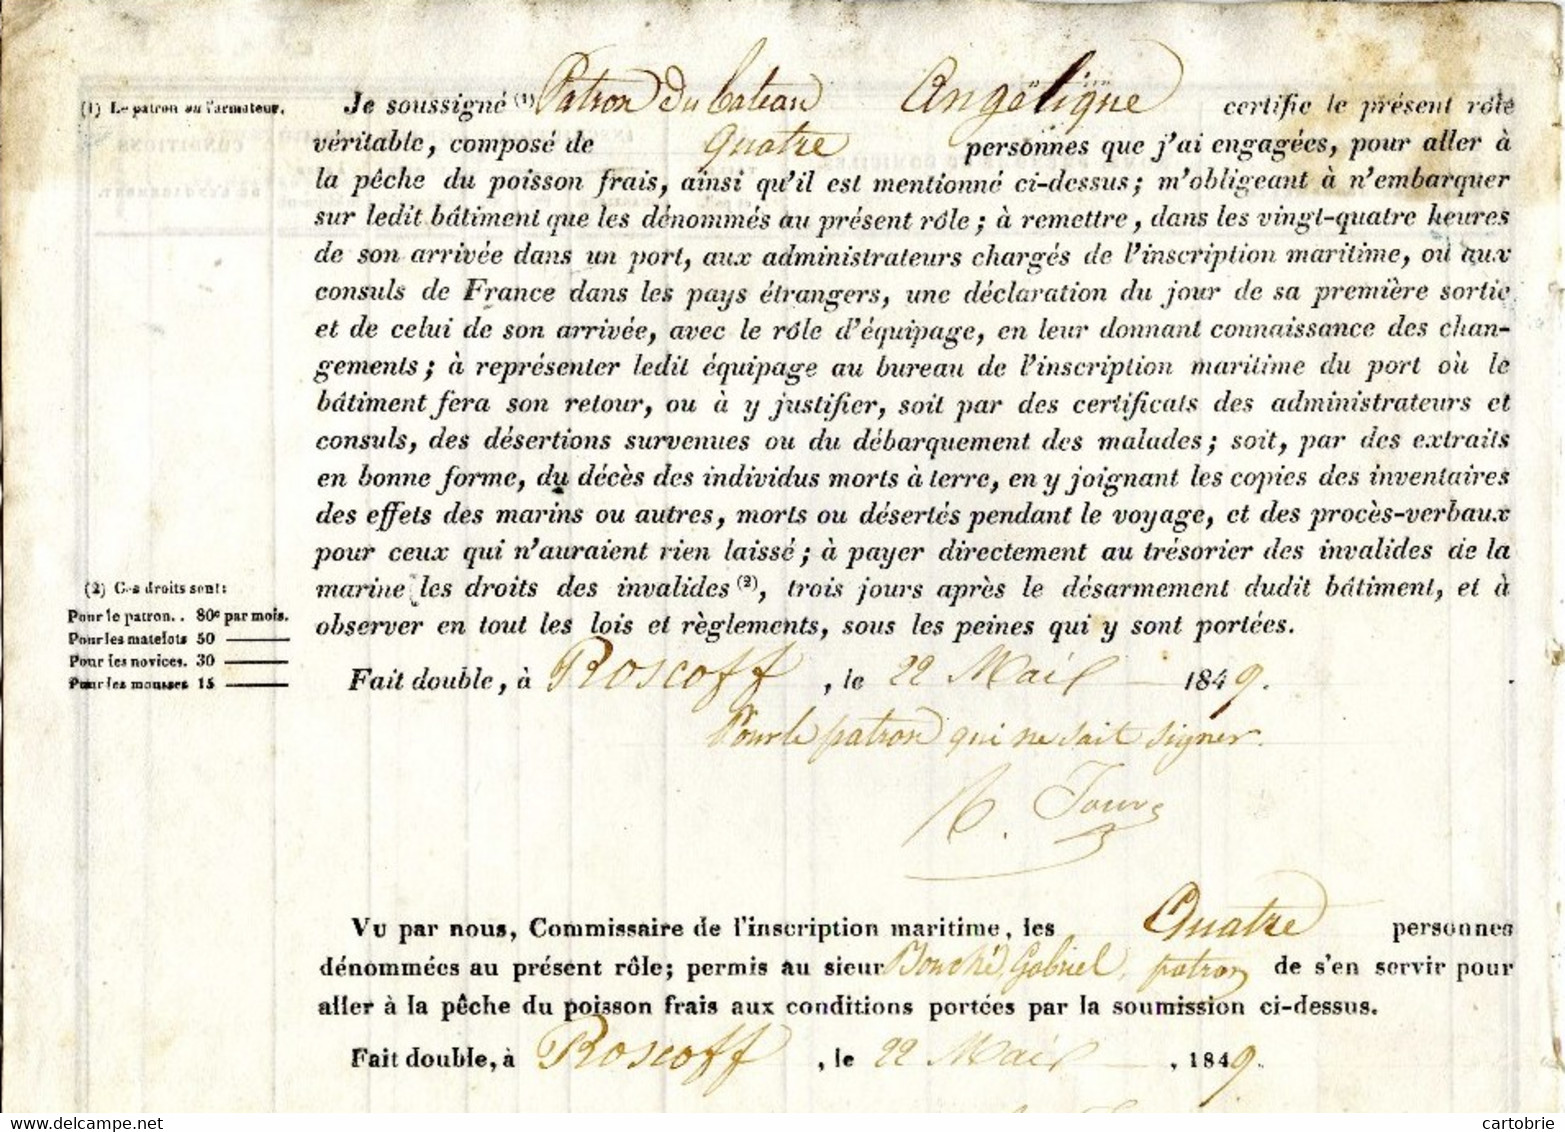 (1) Le patron ou l'armateur.
Je soussigné (1) Patron Du bateau Angélique certifie le présent rôle
véritable, composé de quatre personnes que j'ai engagées, pour aller à
la pêche du poisson frais, ainsi qu'il est mentionné ci-dessus; m'obligeant à n'embarquer
sur ledit bâtiment que les dénommés au présent rôle; à remettre, dans les vingt-quatre heures
de son arrivée dans un port, aux administrateurs chargés de l'inscription maritime, ou aux
consuls de France dans les pays étrangers, une déclaration du jour de sa première sortie
et de celui de son arrivée, avec le rôle d'équipage, en leur donnant connaissance des chan-
gements; à représenter ledit équipage au bureau de l'inscription maritime du port où le
bâtiment fera son retour, ou à y justifier, soit par des certificats des administrateurs et
consuls, des désertions survenues ou du débarquement des malades; soit, par des extraits
en bonne forme, du décès des individus morts à terre, en y joignant les copies des inventaires
des effets des marins ou autres, morts ou désertés pendant le voyage, et des procès-verbaux
pour ceux qui n'auraient rien laissé; à payer directement au trésorier des invalides de la
marine les droits des invalides (2), trois jours après le désarmement dudit bâtiment, et à
observer en tout les lois et règlements, sous les peines qui y sont portées.
(2) Ces droits sont:
Pour le patron.. 80c par mois.
Pour les matelots 50 ———
Pour les novices. 30 ———
Pour les mousses 15 ———
Fait double, à Roscoff, le 22 Mai 1849.
Pour le patron qui ne sait signer.
Vu par nous, Commissaire de l'inscription maritime, les Quatre personnes
dénommées au présent rôle; permis au sieur Bouché, Gabriel, patron de s'en servir pour
aller à la pêche du poisson frais aux conditions portées par la soumission ci-dessus.
Fait double, à Roscoff, le 22 Mai, 1849.
www.delcampe.net
cartobrie